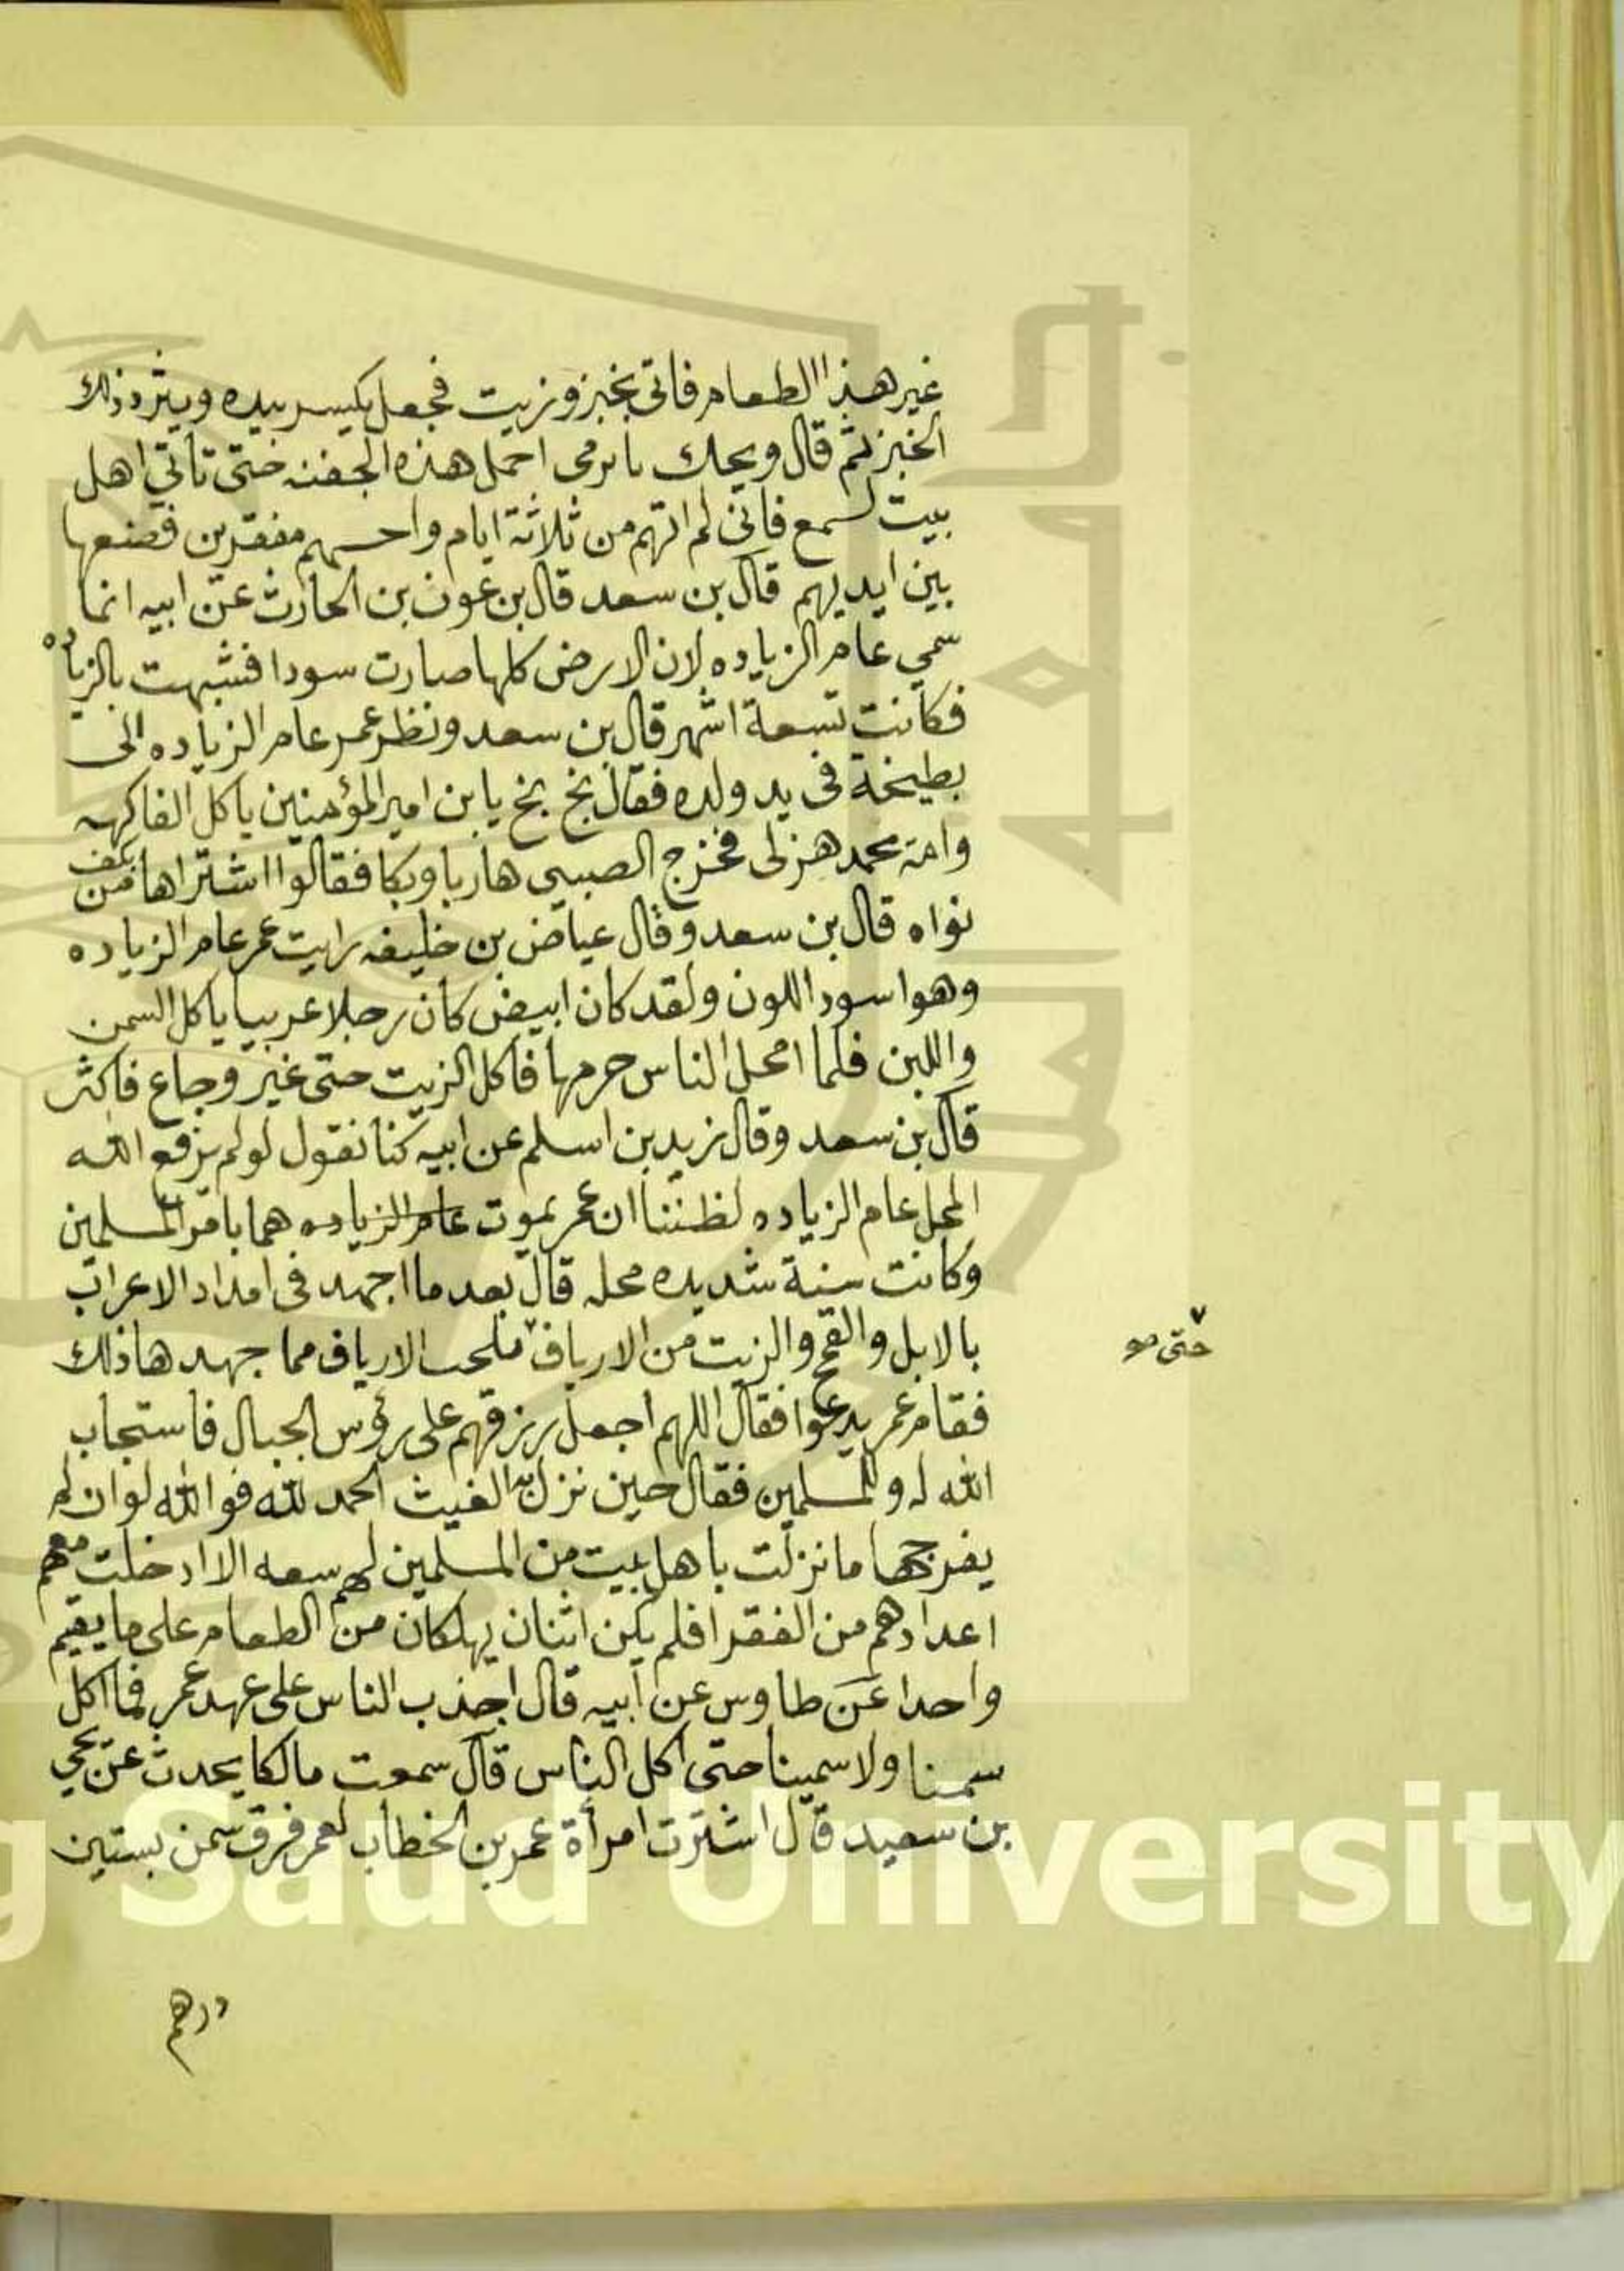 غير هذا الطعام فاتى بخبز وزيت فجعل يكسر بيده ويثرد ذلك
الخبز ثم قال ويحك يا يرمى احمل هذه الجفنه حتى تأتي اهل
بيت لسمع فانى لم اتهم من ثلاثة ايام واحسبهم مفقرين فضعها
بين ايديهم قال بن سعد قال بن عون بن الحارث عن ابيه انما
سمي عام الزياده لان الارض كلها صارت سودا فشبهت بالزياده
فكانت تسعة اشهر قال بن سعد ونظر عمر عام الزياده الى
بطيخة فى يد ولده فقال بخ بخ يا بن امير المؤمنين ياكل الفاكهه
وامة محمد هزلى فخرج الصبي هاربا وبكا فقالوا اشتراها من بكف
نواه قال بن سعد وقال عياض بن خليفه رايت عمر عام الزياده
وهو اسود اللون ولقد كان ابيض كان رجلا عربيا ياكل السمن
واللبن فلما امحل الناس حرمها فاكل الزيت حتى غير وجاع فاكثر
قال بن سعد وقال زيد بن اسلم عن ابيه كنا نقول لو لم يرفع الله
المحل عام الزياده لظننا ان عمر يموت عام الزياده هما بامر المسلمين
وكانت سنة شديده محله قال بعد ما اجهد فى امداد الاعراب
بالابل والقمح والزيت من الارياف ملحت الارياف مما جهدها ذلك
حتى
فقام عمر يدعوا فقال اللهم اجعل رزقهم على رؤس الجبال فاستجاب
الله له وللمسلمين فقال حين نزل به الغيث الحمد لله فوالله لو ان لم
يفرجها ما نزلت باهل بيت من المسلمين لهم سعه الا ادخلت معهم
اعدادهم من الفقرا فلم يكن اثنان يهلكان من الطعام على ما يقيم
واحدا عن طاوس عن ابيه قال اجذب الناس على عهد عمر فما اكل
سمنا ولا سمينا حتى اكل الناس قال سمعت مالكا يحدث عن يحي
بن سعيد قال اشترت امرأة عمر بن الخطاب لعمر فرق سمن بستين
درهم
Saud University